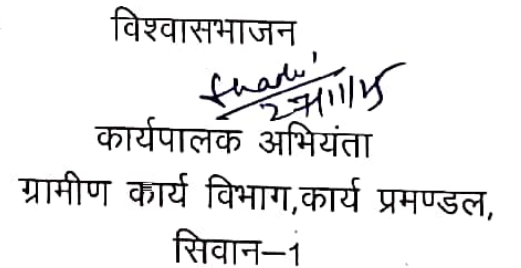 विश्वासभाजन
27/11/15
कार्यपालक अभियंता
ग्रामीण कार्य विभाग,कार्य प्रमण्डल,
सिवान–1